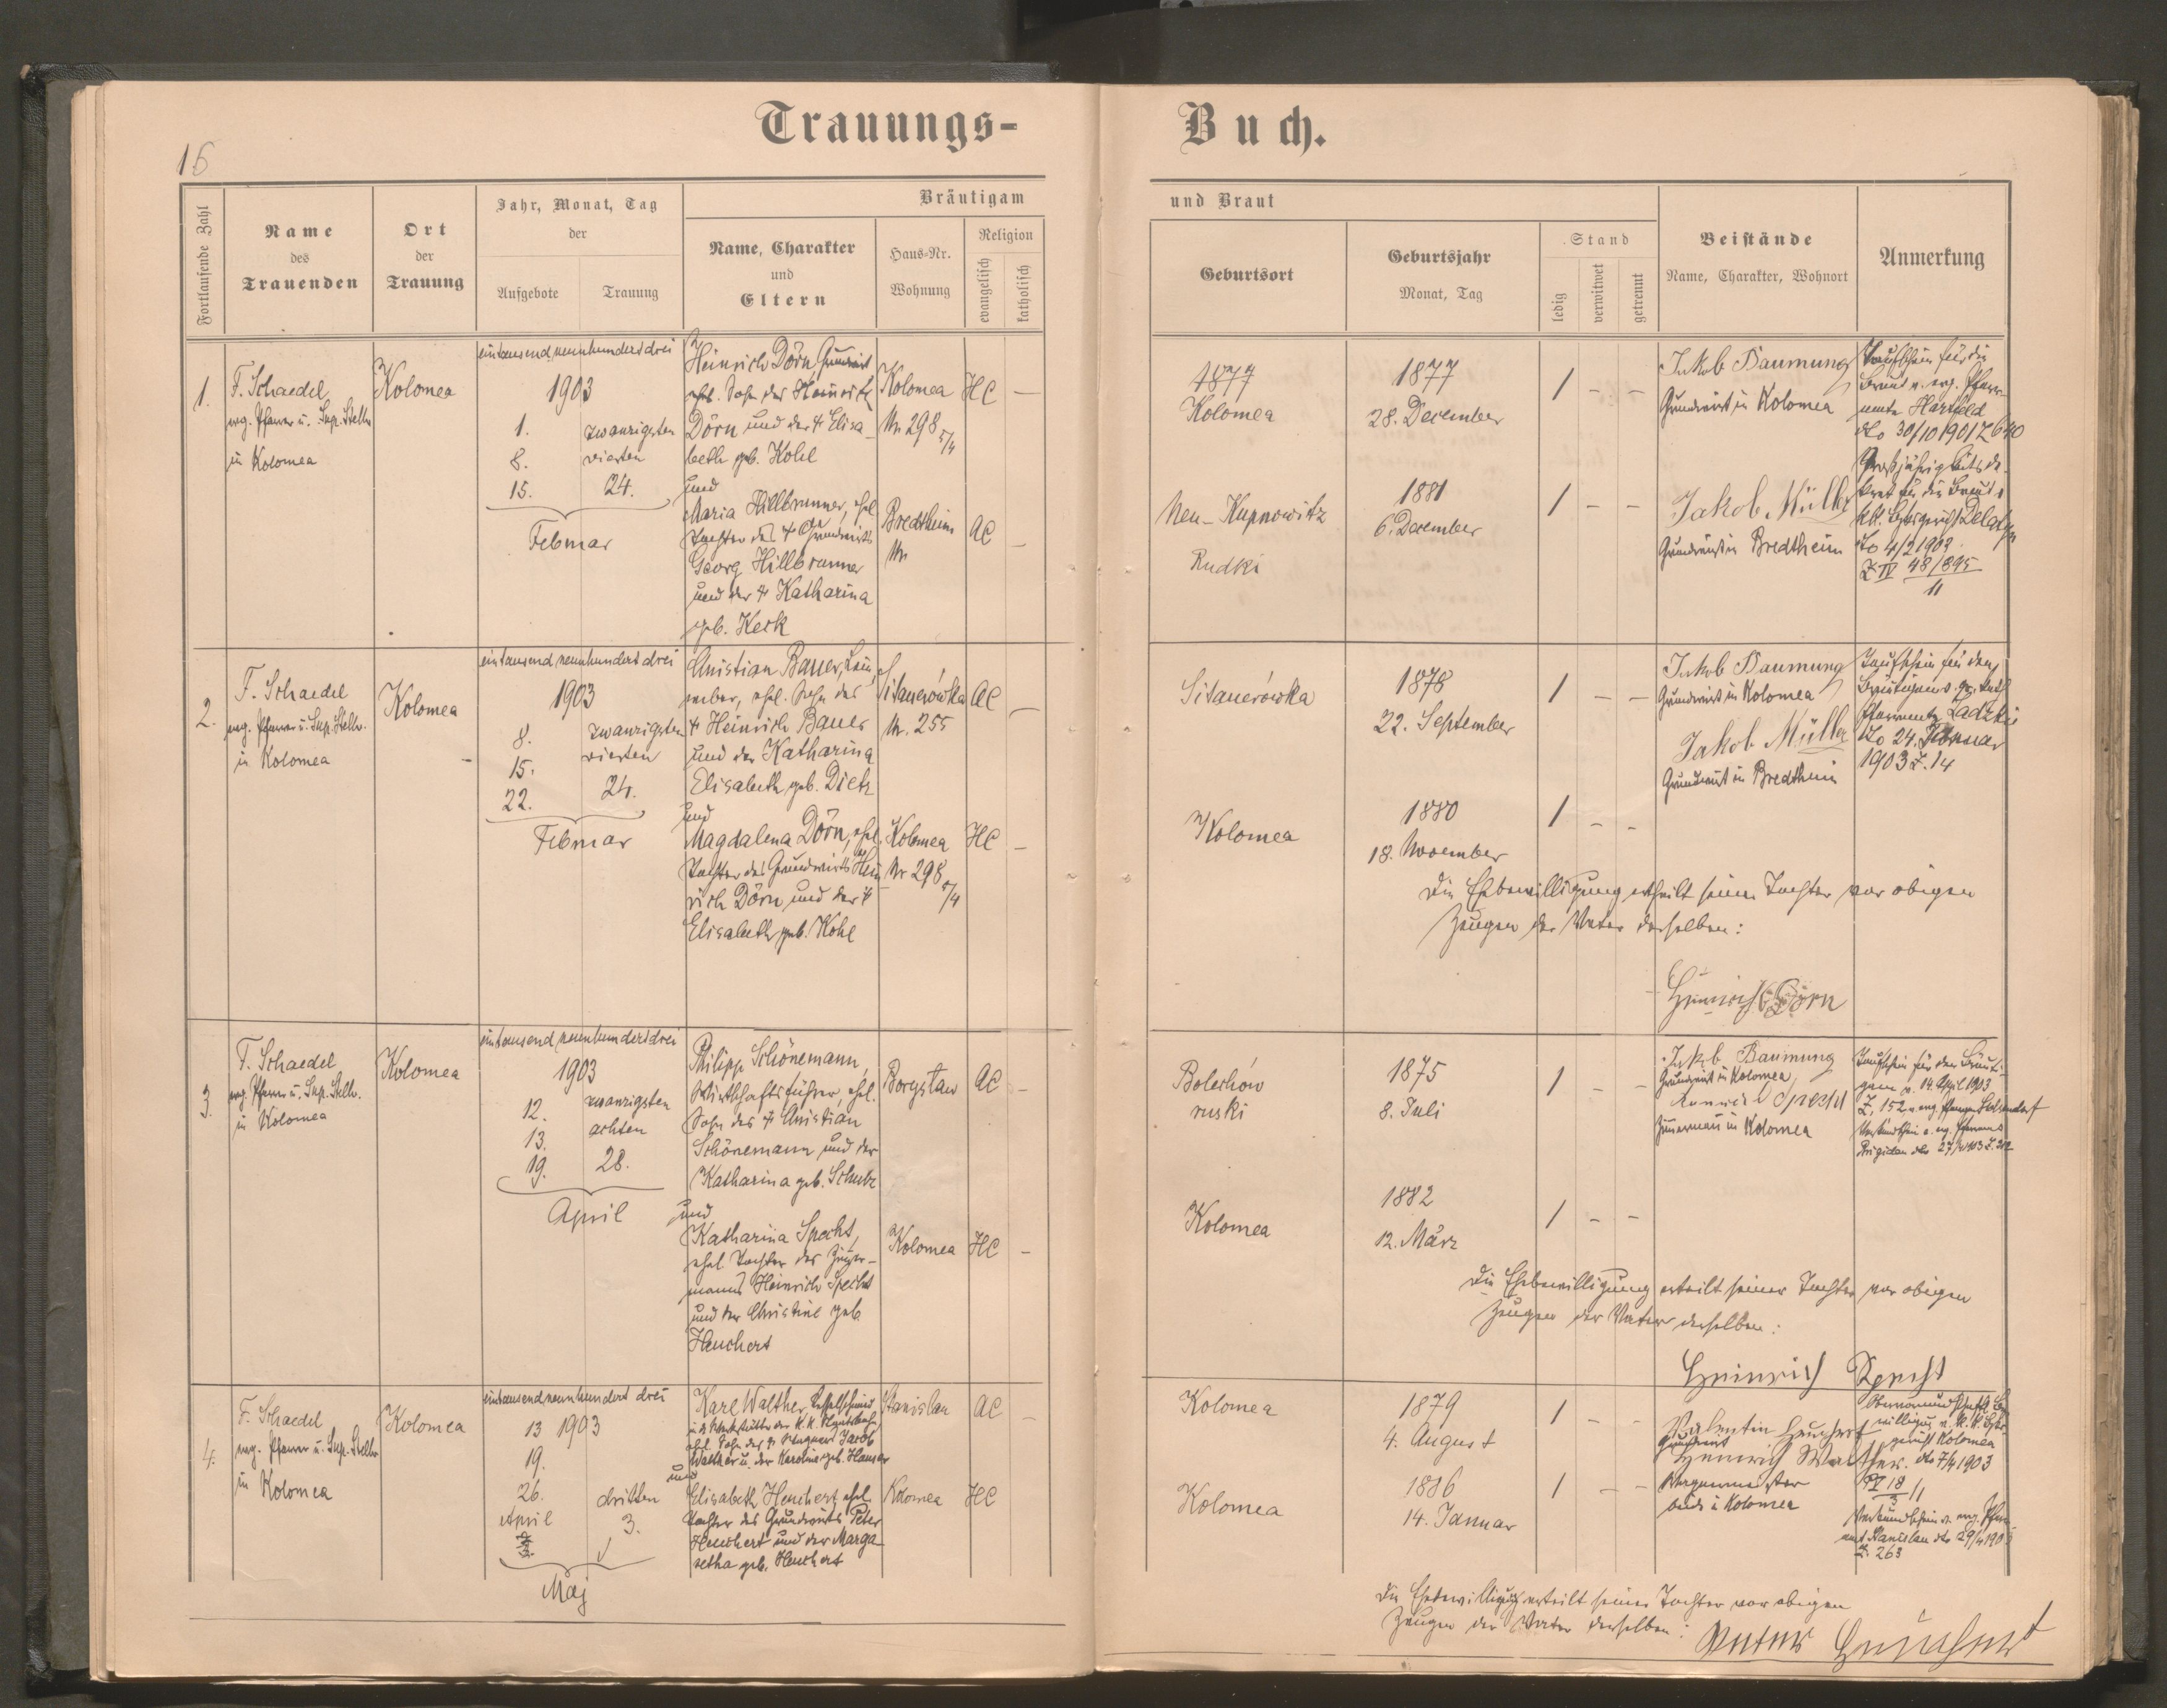 Trauungs-
Buch.
16
Fortlaufende Zahl
Name
des
Trauenden
Ort
der
Trauung
Jahr, Monat, Tag
der
Aufgebote
Trauung
Bräutigam
Name, Charakter
und
Eltern
Haus-Nr.
Wohnung
Religion
evangelisch
katholisch
und Braut
Geburtsort
Geburtsjahr
Monat, Tag
Stand
ledig
verwitwet
getrennt
Beistände
Name, Charakter, Wohnort
Anmerkung
1.
F. Schaedel
evg. Pfarrer u. Sup. Stellv.
in Kolomea
Kolomea
eintausend neunhundert drei
1903
1.
8.
15.
zwanzigsten
vierten
24.
Februar
Heinrich Dörn, Grundwirt
ehel. Sohn des Heinrich
Dörn und der † Elisa-
beth geb. Kohl
und
Maria Hillbrunner, ehel.
Tochter des † Grundwirts
Georg Hillbrunner
und der † Katharina
geb. Keck
Kolomea
Nr. 298 5/4
HC —
Bredtheim
Nr.
AC —
1877
Kolomea
1877
28. December
/ - -
Neu-Kupnowitz
Rudki
1881
6. December
/ - -
Jakob Baumung
Grundwirt in Kolomea
Jakob Müller
Grundwirt in Bredtheim
Taufschein für die
Braut v. evg. Pfarr-
amte Hartfeld
dto 30/10 1901 Z 640
Großjährigkeitsde-
kret für die Braut v.
Delatyn
dto 4/2 1903
Z IV 48/895
11
2.
F. Schaedel
evg. Pfarrer u. Sup. Stellv.
in Kolomea
Kolomea
eintausend neunhundert drei
1903
8.
15.
22.
zwanzigsten
vierten
24.
Februar
Christian Bauer, Lein-
weber, ehel. Sohn des
† Heinrich Bauer
und der Katharina
Elisabeth geb. Dietz
und
Magdalena Dörn, ehel.
Tochter des Grundwirts Hein-
rich Dörn und der †
Elisabeth geb. Kohl
Sitauerówka
Nr. 255
AC —
Kolomea
Nr 298 5/4
HC —
Sitauerówka
1878
22. September
/ - -
Kolomea
1880
18. November
/ - -
Jakob Baumung
Grundwirt in Kolomea
Jakob Müller
Grundwirt in Bredtheim
Taufschein für den
Bräutigam v.
Pfarramte Zadzki
dto 24. Februar
1903 Z. 14
Die Ehebewilligung ertheilt seiner Tochter vor obigen
Zeugen der Vater derselben:
Heinrich Dörn
3.
F. Schaedel
evg. Pfarrer u. Sup. Stellv.
in Kolomea
Kolomea
eintausend neunhundert drei
1903
12.
13.
19.
zwanzigsten
achten
28.
April
Philipp Schönemann,
Wirtschaftsführer, ehel.
Sohn des † Christian
Schönemann und der
Katharina geb. Schulz
und
Katharina Specht,
ehel. Tochter des Zimmer-
manns Heinrich Specht
und der Christine geb.
Heuchert
Borysław
AC —
Kolomea
HC —
Bolechów
ruski
1875
8. Juli
/ - -
Kolomea
1882
12. März
/ - -
Jakob Baumung
Grundwirt in Kolomea
Konrad Specht
Zimmermann in Kolomea
Taufschein für den Bräuti-
gam v. 14 April 1903
Z. 152 v. evg. Pfarramt
Die Ehebewilligung erteilt seiner Tochter vor obigen
Zeugen der Vater derselben:
Heinrich Specht
4.
F. Schaedel
evg. Pfarrer u. Sup. Stellv.
in Kolomea
Kolomea
eintausend neunhundert drei
13 1903
19.
26.
April
dritten
3.
Maj
Karl Walther, Kesselschmied
in d. Werkstätte der K. K. Staatsbahn
ehel. Sohn des † Wagners Jacob
Walther u. der Karoline geb. Hauser
und
Elisabeth Heuchert, ehel.
Tochter des Grundwirts Peter
Heuchert und der Marga-
retha geb. Heuchert
Stanislau
AC —
Kolomea
HC
Kolomea
1879
4. August
/ - -
Kolomea
1886
14. Januar
/ - -
Valentin Heuchert
Grundwirt
Heinrich Walther
Wagnermeister
beide in Kolomea
Obervormundschaftl. Be-
willigung v. K. K. Bezirks-
gericht Kolomea
dto 7/4 1903
Verkündschein v. evg. Pfarr-
amt Stanislau dto 29/4 1903
Z. 263
Die Ehebewilligung erteilt seiner Tochter vor obigen
Zeugen der Vater derselben:
Peter Heuchert